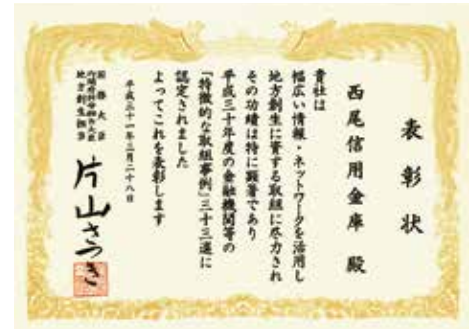 表彰状
西尾信用金庫 殿
貴社は
幅広い情報・ネットワークを活用し
地方創生に資する取組に尽力され
その功績は特に顕著であり
平成三十年度の金融機関等の
「特徴的な取組事例」三十三選に
認定されました
よってこれを表彰します
平成三十一年三月二十八日
国務大臣
内閣府特命担当大臣
地方創生担当
片山さつき